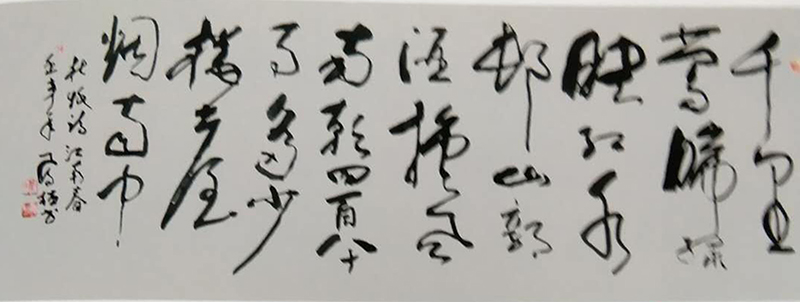 千里
莺啼绿
映红水
邨山郭
酒旗风
南朝四百八十
寺多少
楼臺
烟雨中
杜牧诗江南春
年
书